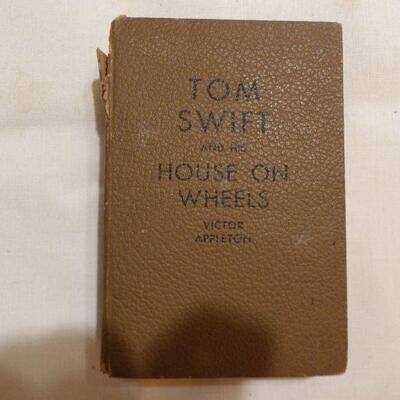 TOM
SWIFT
AND HIS
HOUSE ON
WHEELS
VICTOR
APPLETON